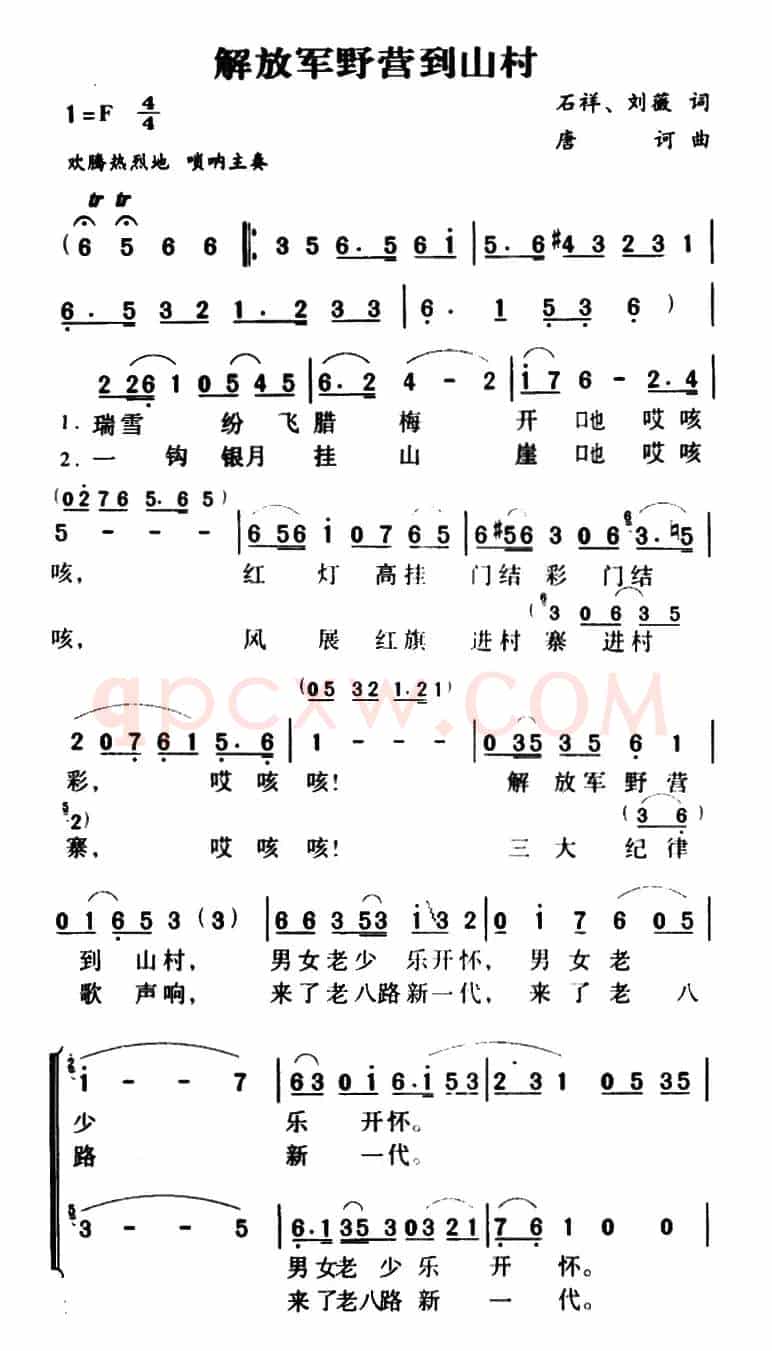 解放军野营到山村
1=F 4/4 石祥、刘薇 词
唐 诃 曲
欢腾热烈地 唢呐主奏
tr tr
(6 5 6 6 ‖: 3 5 6. 5 6 i | 5. 6 #4 3 2 3 1 |
6. 5 3 2 1. 2 3 3 | 6. 1 5 3 6 )
2 2 6 1 0 5 4 5 | 6. 2 4 - 2 | i 7 6 - 2. 4 |
1. 瑞雪 纷飞腊梅 开 吔哎咳
2. 一钩银月挂山 崖吔哎咳
(0 2 7 6 5. 6 5)
5 - - - | 6 5 6 i 0 7 6 5 | 6 #5 6 3 0 6 6 3. ♮5 |
咳, 红灯高挂门结彩门结
(6 3 0 6 3 5
咳, 风展红旗进村寨进村
qpcxw.COM
(0 5 3 2 1. 2 1)
2 0 7 6 1 5. 6 | 1 - - - | 0 3 5 3 5 6 1 |
彩, 哎咳咳! 解放军野营
5 2) (3 6)
寨, 哎咳咳! 三大纪律
0 1 6 5 3 3 (3) | 6 6 3 5 3 i 3 2 | 0 i 7 6 0 5 |
到山村, 男女老少乐开怀, 男女老
歌声响, 来了老八路新一代, 来了老八
2 i - - 7 | 6 3 0 i 6. i 5 3 | 2 3 1 0 5 3 5 |
少 乐 开怀。
路 新 一代。
5 3 - - 5 | 6. 1 3 5 0 3 2 1 | 7 6 1 0 0 |
男女老少乐开怀。
来了老八路新一代。